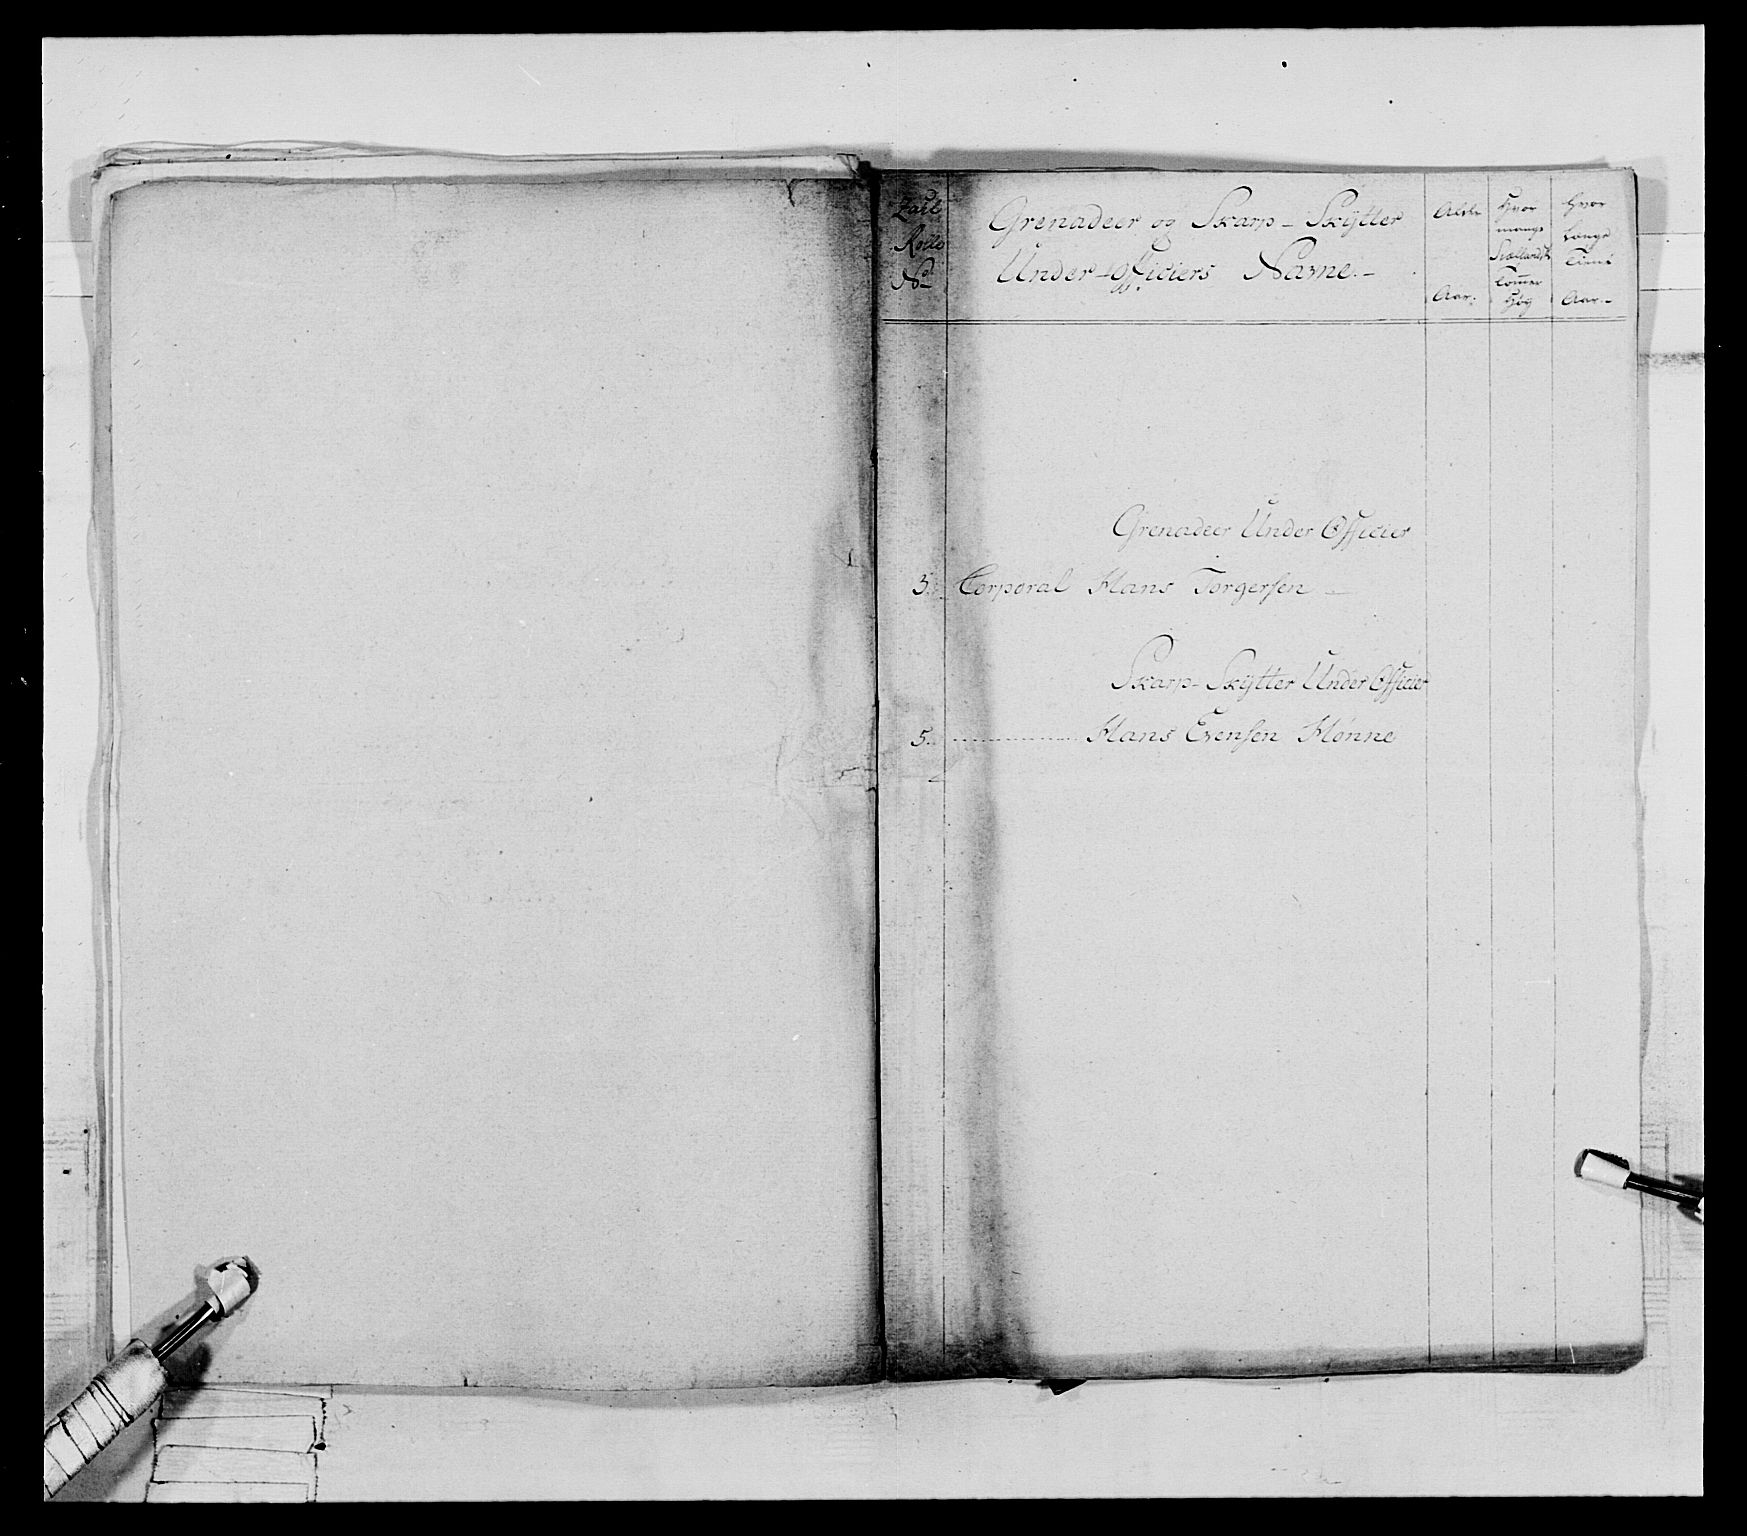 Zail
Rolle
No
Grenadeer og Skarp-Skÿtter
Under-Officiers Navne.-
Alder
Aar.
Hvor
mange
Siællandsk
Tom̄er
Høy
Hvor
Længe
Tient
Aar.-
Grenadeer Under Officier
3. Corporal Hans Torgersen
Skarp-Skÿtter Under Officier
5. Hans Evensen Hønne